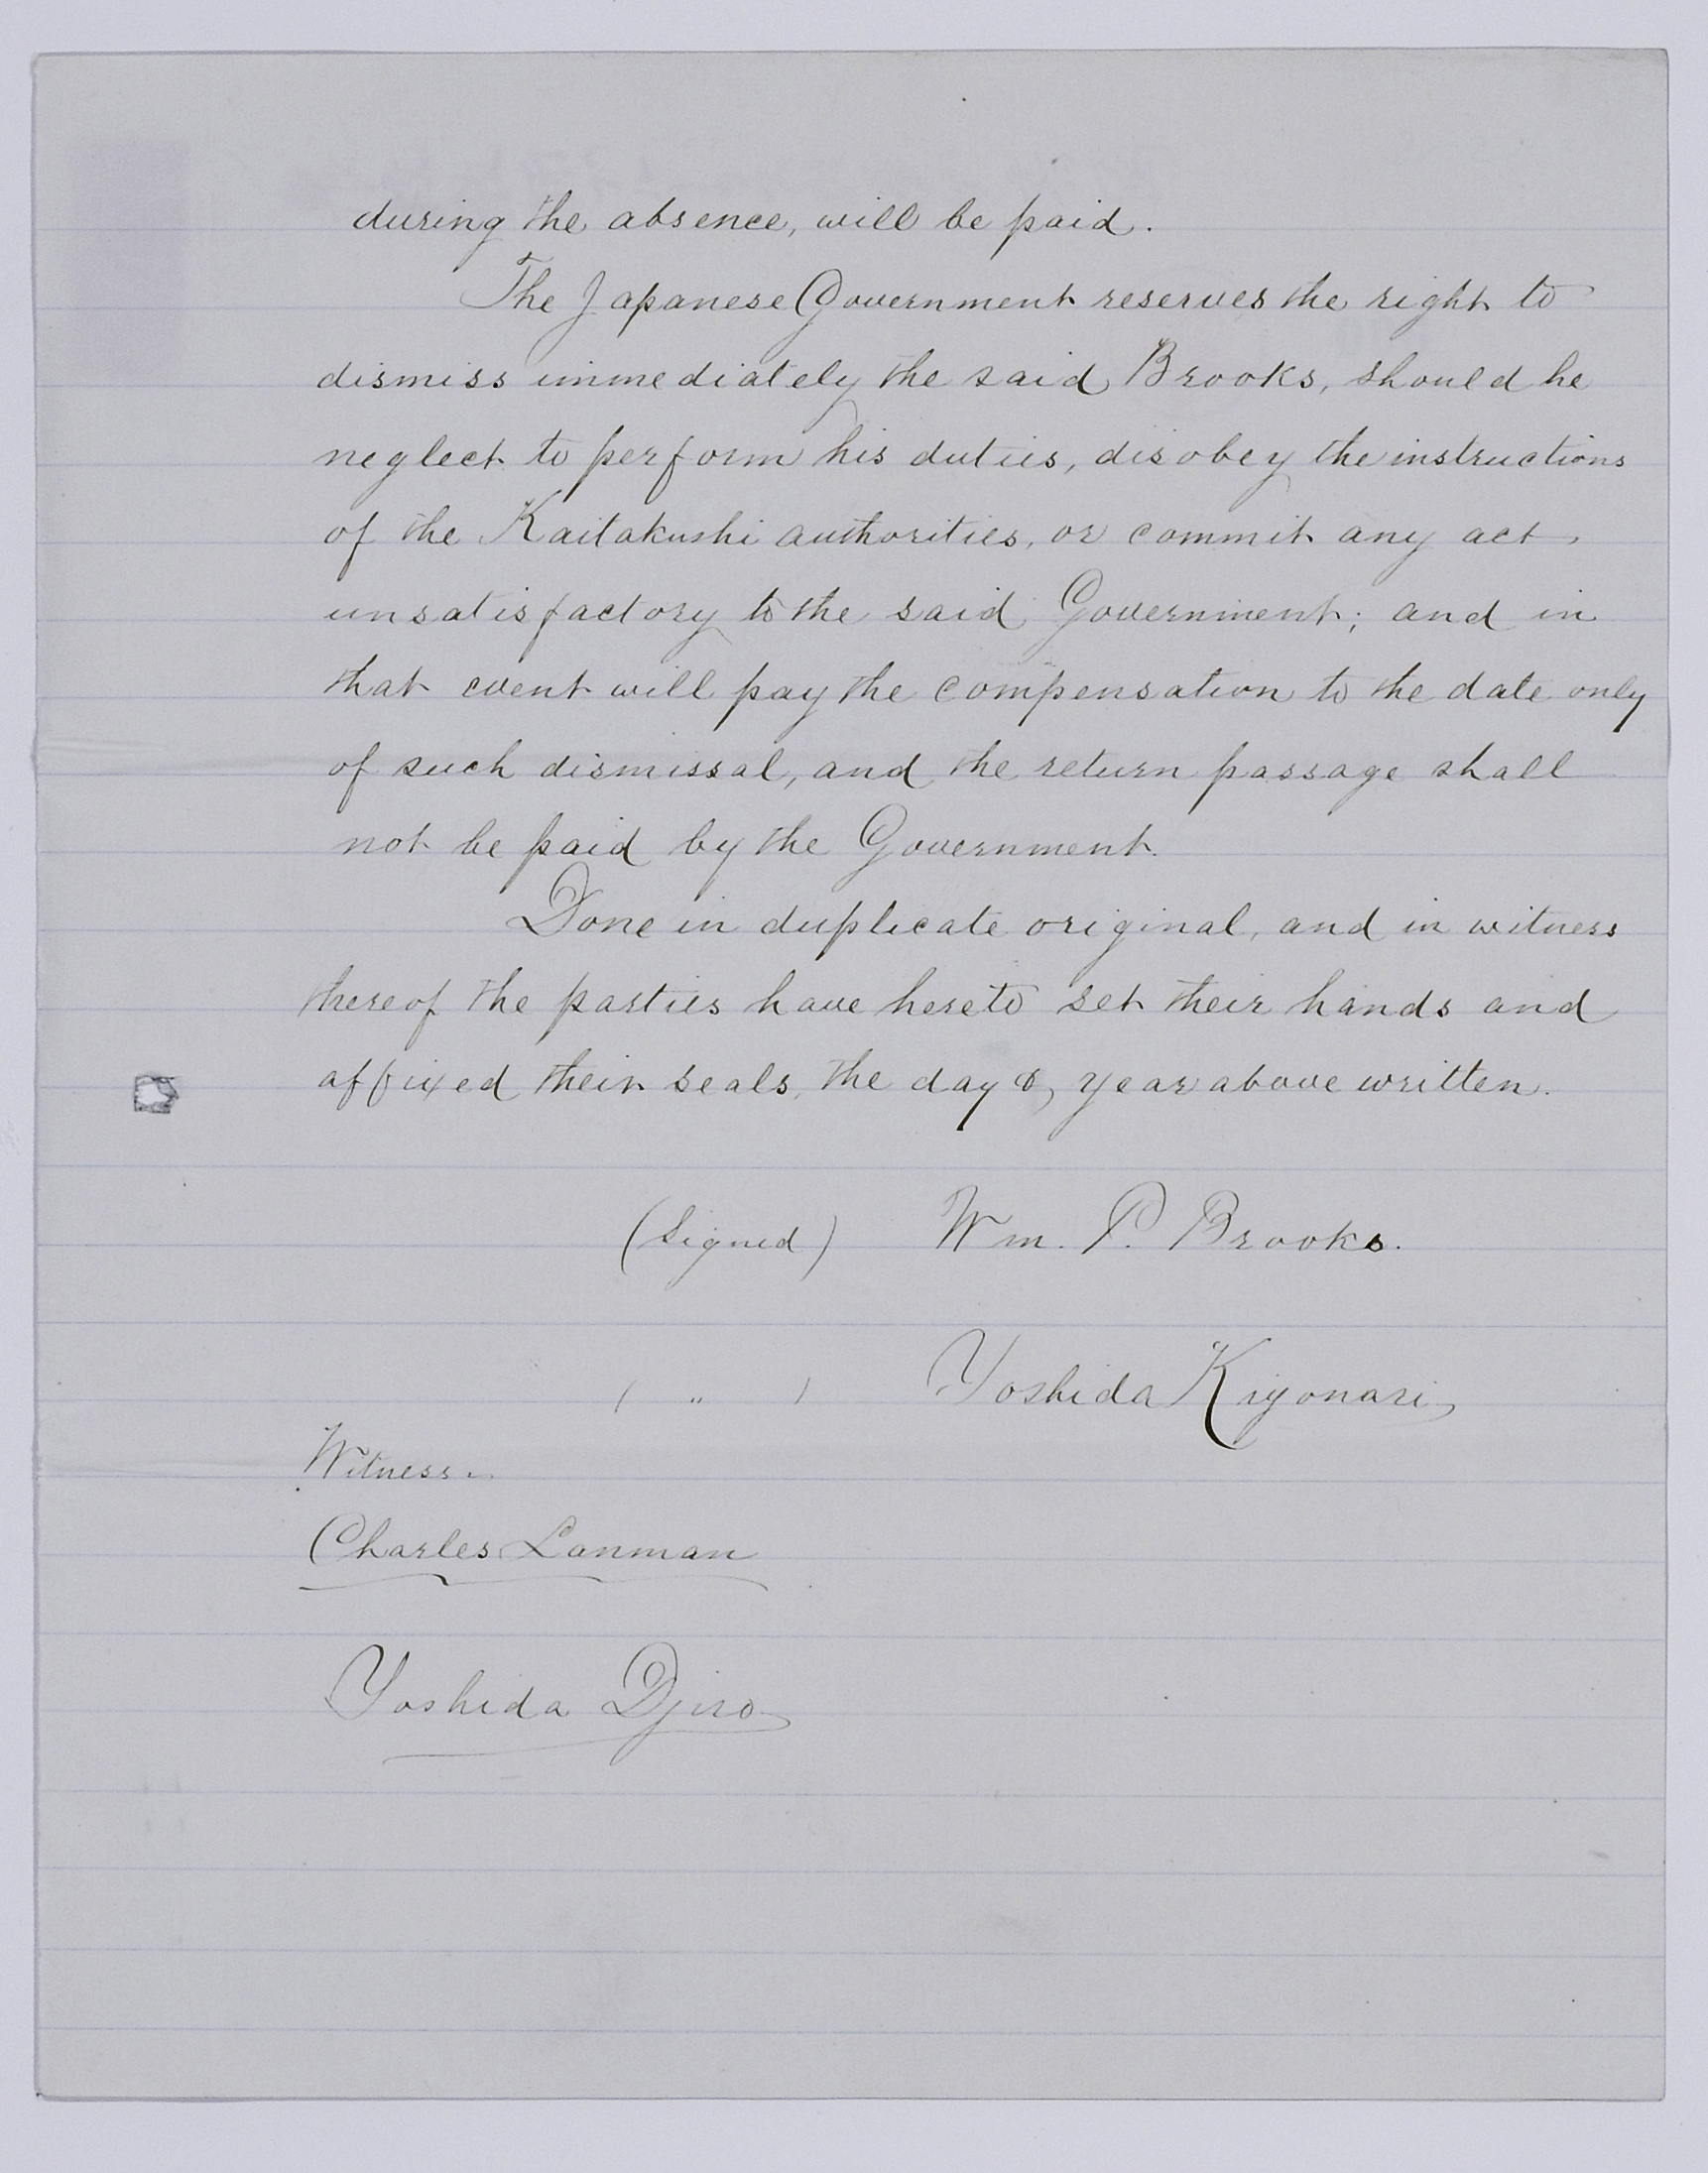 during the absence, will be paid.
The Japanese Government reserves the right to
dismiss immediately the said Brooks, should he
neglect to perform his duties, disobey the instructions
of the Kaitakushi authorities, or commit any act
unsatisfactory to the said Government; and in
that event will pay the compensation to the date only
of such dismissal, and the return passage shall
not be paid by the Government.
Done in duplicate original, and in witness
thereof the parties have hereto set their hands and
affixed their seals, the day & year above written.
(Signed) Wm. P. Brooks.
( " ) Yoshida Kiyonari
Witness.
Charles Lanman
Yoshida Djiro